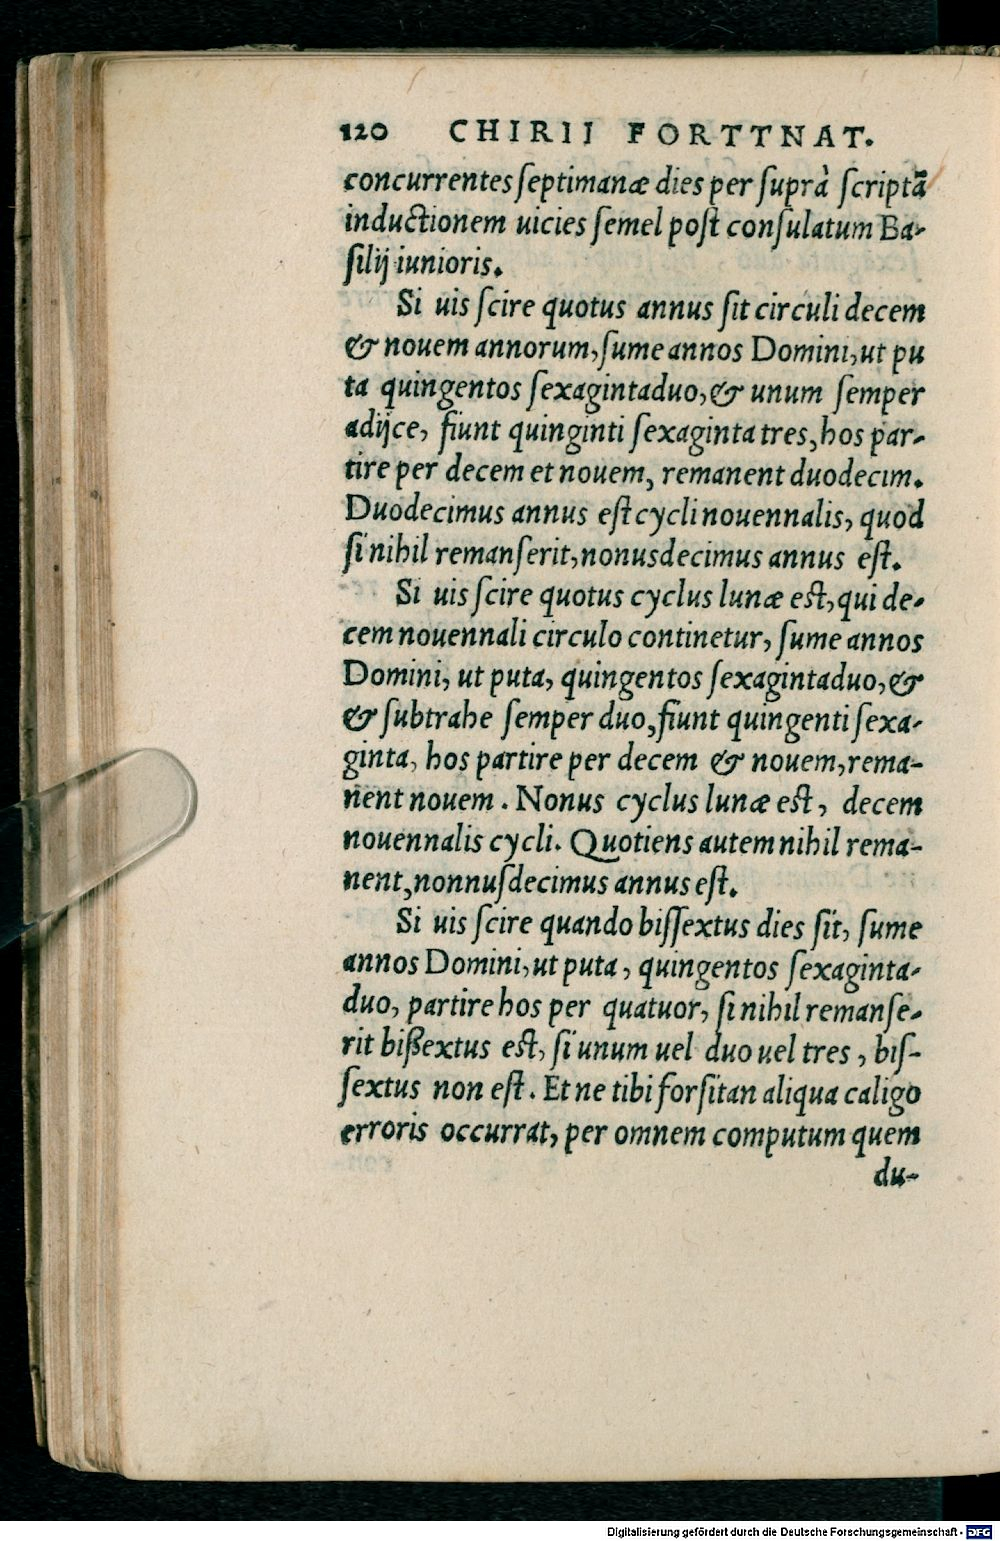 120 CHIRII FORTTNAT.
concurrentes septimanæ dies per suprà scriptā
inductionem uicies semel post consulatum Ba-
silij iunioris.
Si uis scire quotus annus sit circuli decem
& nouem annorum, sume annos Domini, ut pu
ta quingentos sexagintaduo, & unum semper
adijce, fiunt quinginti sexaginta tres, hos par-
tire per decem et nouem, remanent duodecim.
Duodecimus annus est cycli nouennalis, quod
si nihil remanserit, nonusdecimus annus est.
Si uis scire quotus cyclus lunæ est, qui de-
cem nouennali circulo continetur, sume annos
Domini, ut puta, quingentos sexagintaduo, &
& subtrahe semper duo, fiunt quingenti sexa-
ginta, hos partire per decem & nouem, rema-
nent nouem. Nonus cyclus lunæ est, decem
nouennalis cycli. Quotiens autem nihil rema-
nent, nonnusdecimus annus est.
Si uis scire quando bissextus dies sit, sume
annos Domini, ut puta, quingentos sexaginta-
duo, partire hos per quatuor, si nihil remanse-
rit bißextus est, si unum uel duo uel tres, bis-
sextus non est. Et ne tibi forsitan aliqua caligo
erroris occurrat, per omnem computum quem
du-
Digitalisierung gefördert durch die Deutsche Forschungsgemeinschaft - DFG